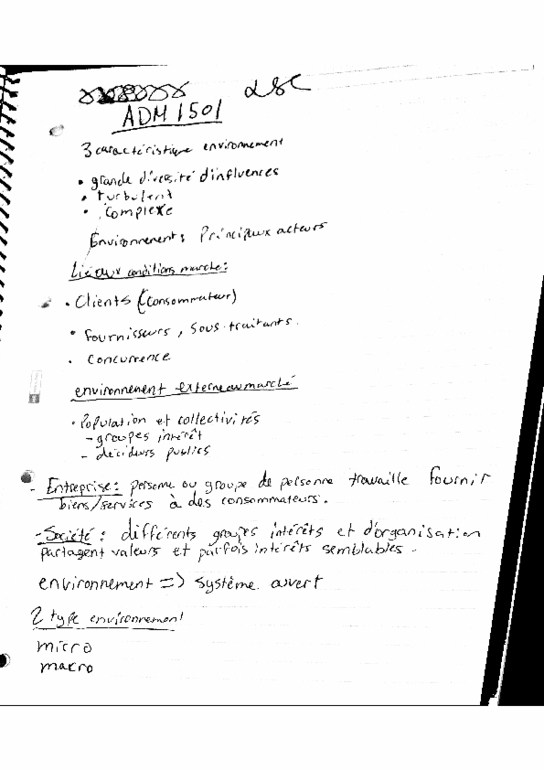 ADM1501
3 caractéristique environnement
• grande diversité d'influences
• turbulent
• complexe
Environnement : Principaux acteurs
Lié aux conditions marché :
• Clients (consommateur)
• fournisseurs, sous-traitants.
• concurrence
environnement externe au marché
• Population et collectivités
- groupes intérêt
- décideurs publics
- Entreprise : personne ou groupe de personne travaille fournir
biens/services à des consommateurs.
- Société : différents groupes intérêts et d'organisation
partagent valeurs et parfois intérêts semblables.
environnement => système ouvert
2 type environnement
micro
macro